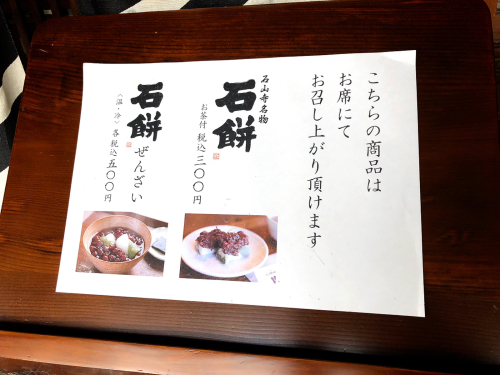 こちらの商品は
お席にて
お召し上がり頂けます
石山寺名物
石餅
お茶付 税込 三〇〇円
石餅 ぜんざい
（温・冷）各税込 五〇〇円